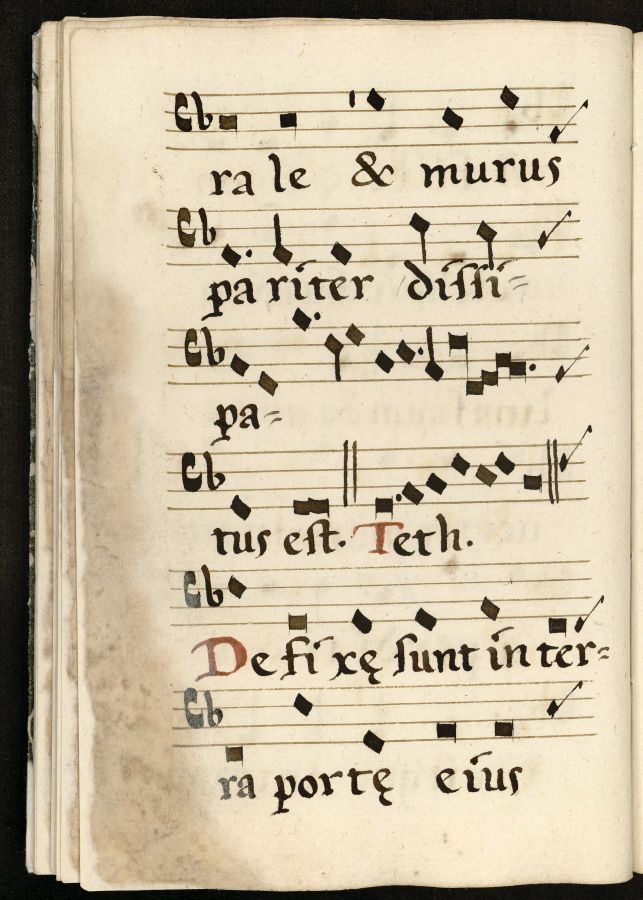 ra le & murus
pariter dissi=
pa=
tus est. Teth.
Defixę sunt in ter=
ra portę eius